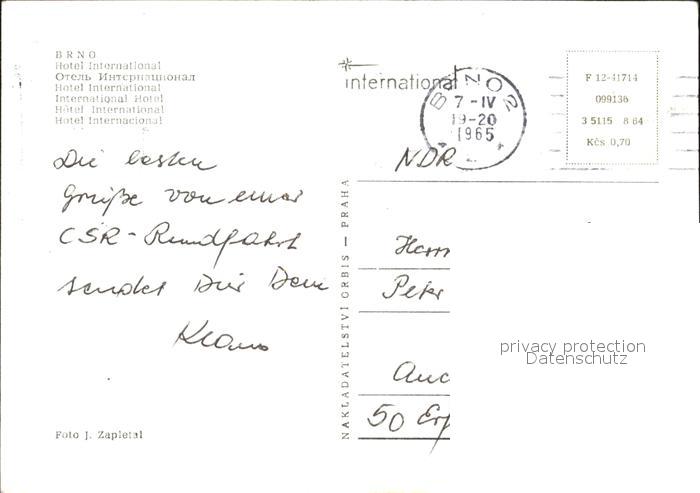 BRNO
Hotel International
Отель Интернационал
Hotel International
International Hotel
Hôtel International
Hotel Internacional
Die besten
Grüße von einer
CSR-Rundfahrt
sendet Dir Dein
Klaus
Foto J. Zapletal
NAKLADATELSTVÍ ORBIS — PRAHA
international
BRNO 2
7 -IV
19-20
1965
F 12-41714
099136
3 5115 8 64
Kčs 0,70
Herrn
Peter
50 Erf
privacy protection
Datenschutz